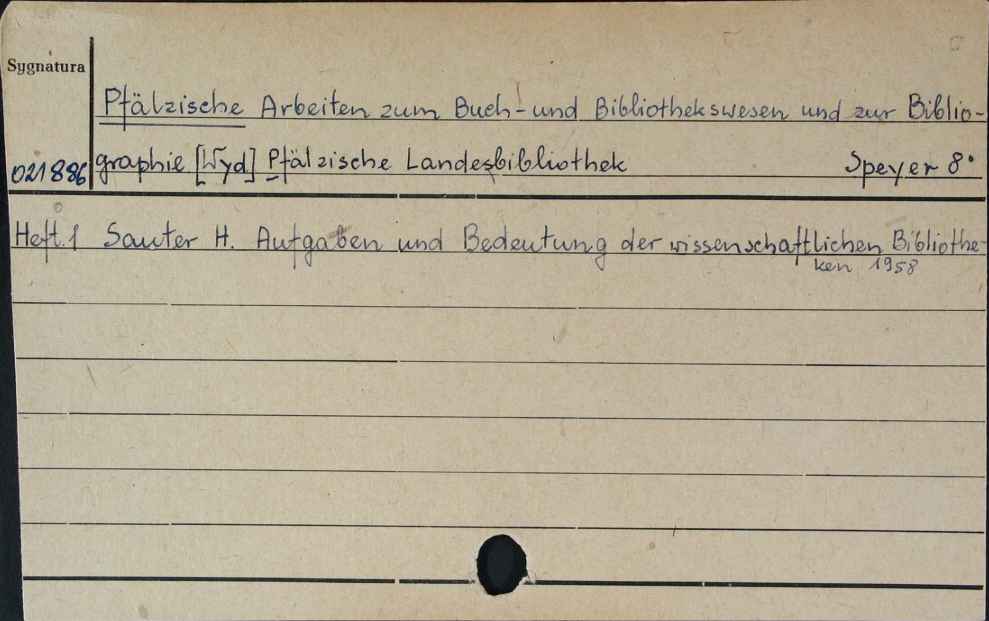 Sygnatura
Pfälzische Arbeiten zum Buch- und Bibliothekswesen und zur Biblio-
021886 graphie [Wyd] Pfälzische Landesbibliothek Speyer 8°
Heft.1 Sauter H. Aufgaben und Bedeutung der wissenschaftlichen Bibliothe-
ken 1958